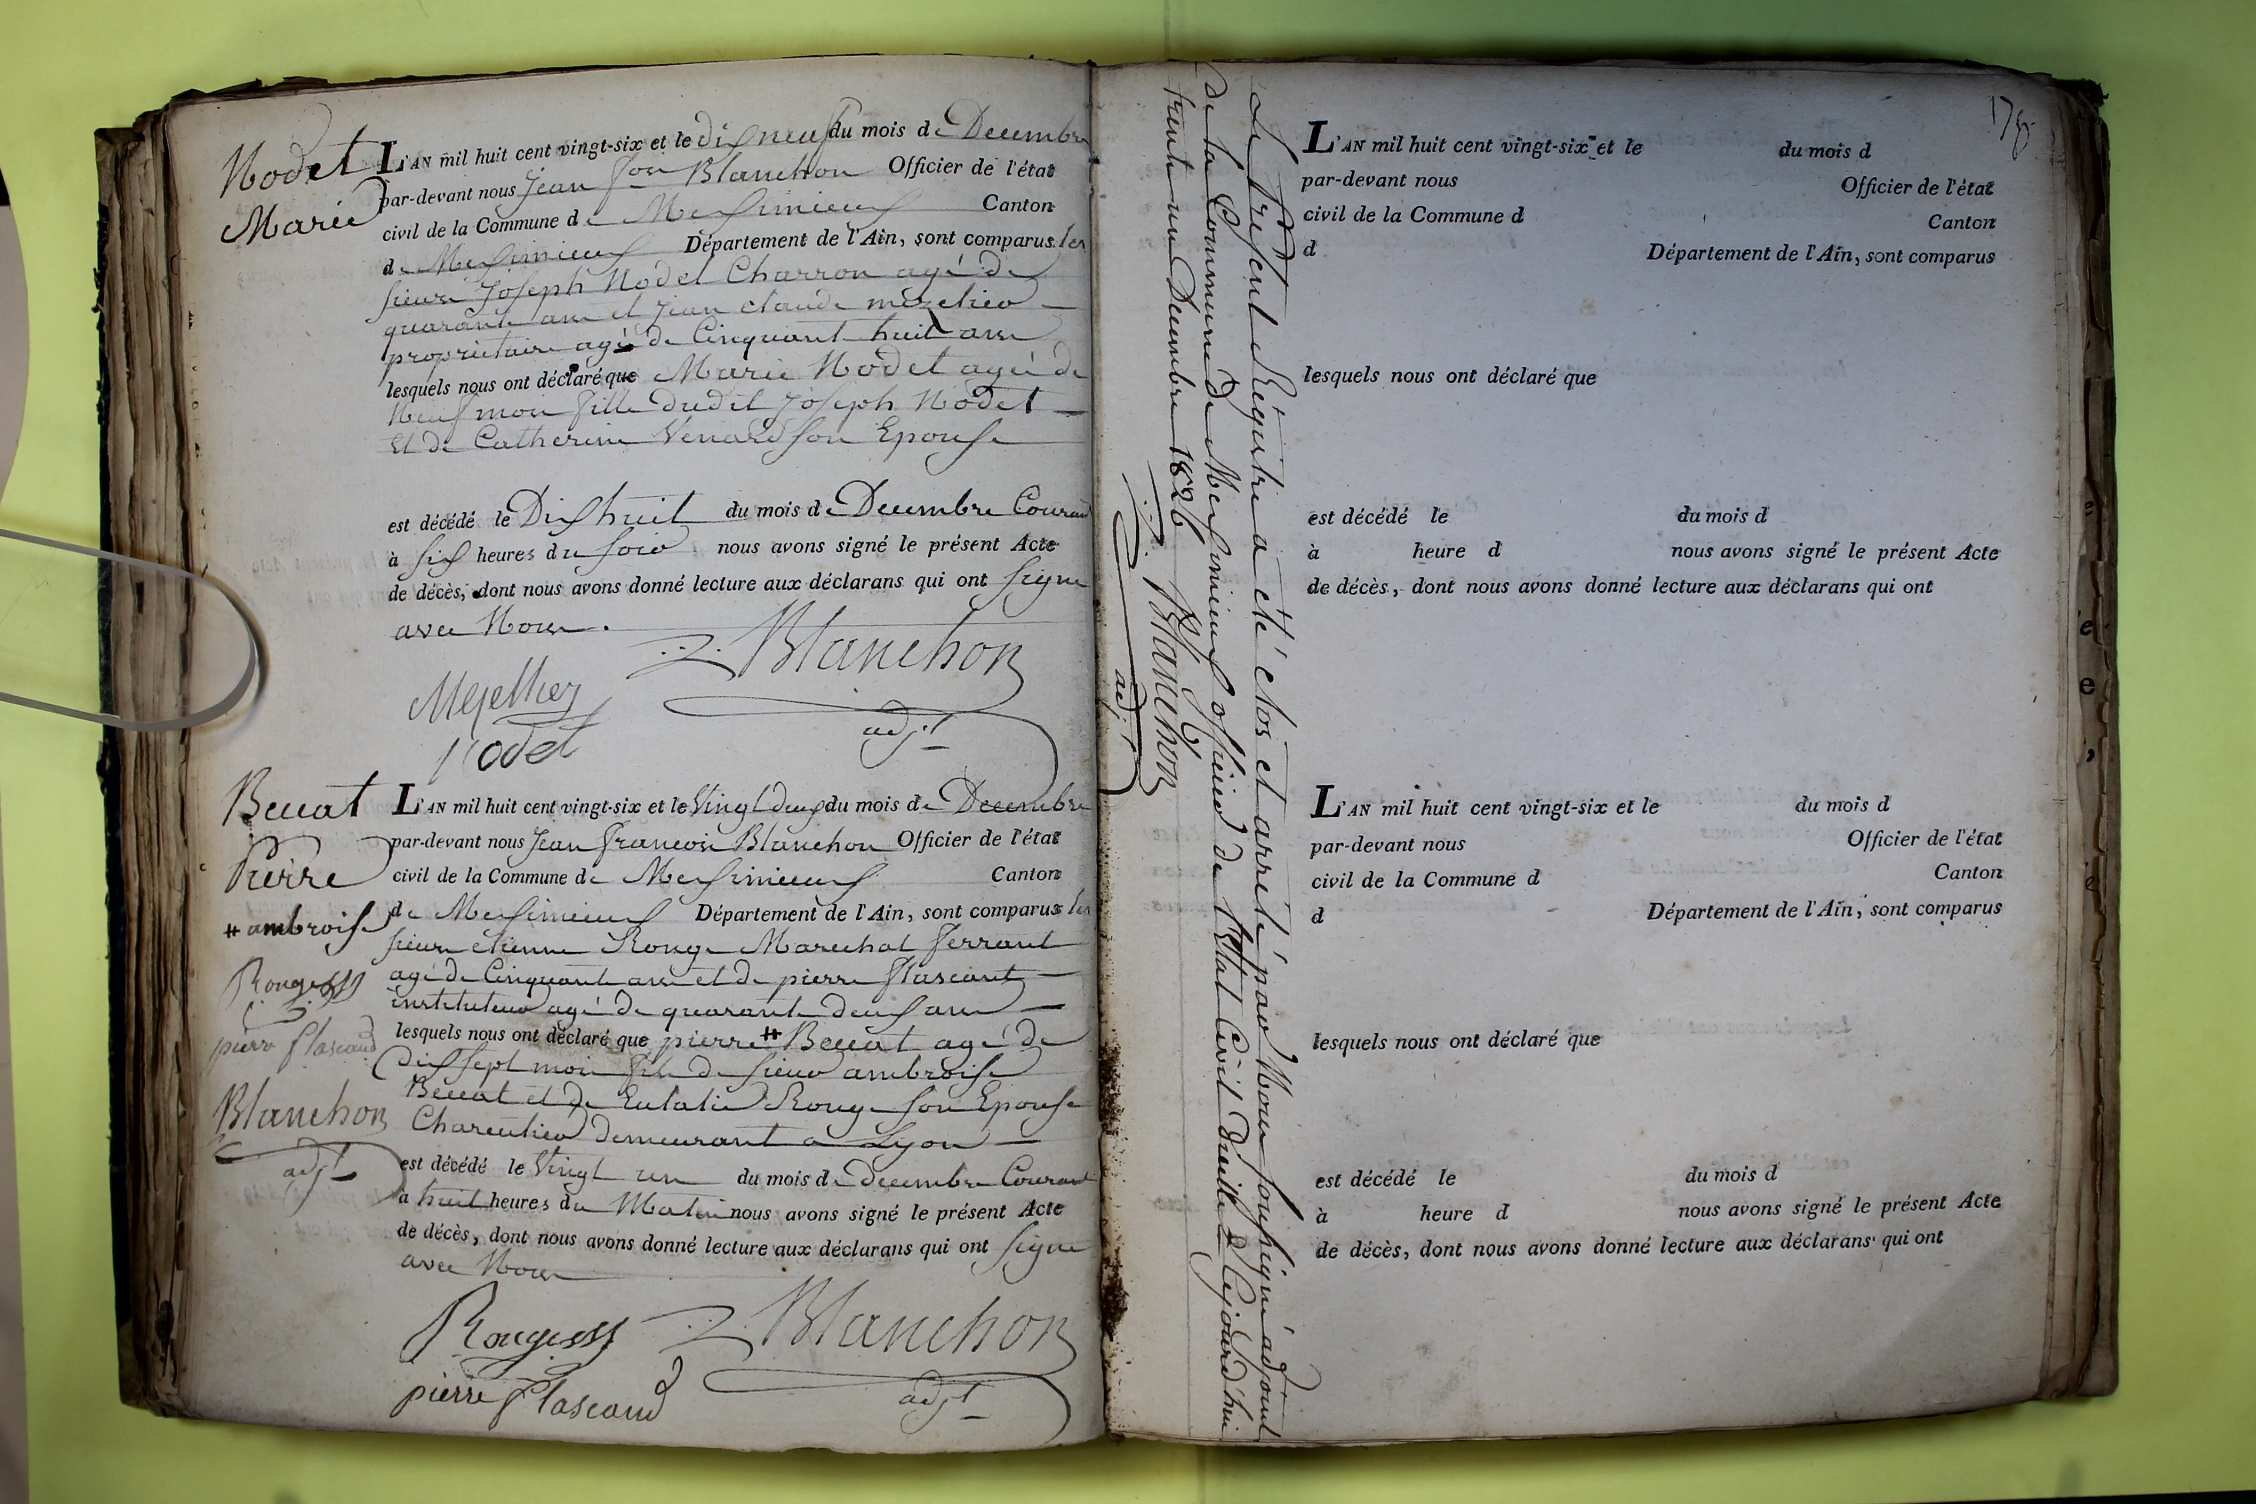 Nodet
Marie
L'AN mil huit cent vingt-six et le dixneuf du mois de Decembre
par-devant nous Jean fois Blanchon Officier de l'état
civil de la Commune de Messimieux Canton
de Messimieux Département de l'Ain, sont comparus les
sieurs Joseph Nodet Charron agé de
quarante ans et Jean claude
propriétaire agé de Cinquante huit ans
lesquels nous ont déclaré que Marie Nodet agée de
Neuf mois fille dudit Joseph Nodet
et de Catherine Venard son Epouse
est décédé le Dix huit du mois de Decembre Courant
à six heures du soir nous avons signé le présent Acte
de décès, dont nous avons donné lecture aux déclarans qui ont signé
avec Nous.
Blanchon
adjt
Nodet
Beccat
Pierre
# ambroise
Rouge
pierre flascaud
Blanchon
adjt
L'AN mil huit cent vingt-six et le Vingt deux du mois de Decembre
par-devant nous Jean francois Blanchon Officier de l'état
civil de la Commune de Messimieux Canton
de Messimieux Département de l'Ain, sont comparus les
sieurs etienne Rouge Marechal ferrant
agé de Cinquante ans et de pierre flascaut
instituteur agé de quarante deux ans
lesquels nous ont déclaré que pierre # Beccat agé de
dix sept mois fils de sieur ambroise
Beccat et de Eulalie Rouge son Epouse
demeurant a Lyon
est décédé le Vingt un du mois de decembre Courant
à huit heures du Matin nous avons signé le présent Acte
de décès, dont nous avons donné lecture aux déclarans qui ont signé
avec Nous
Rouge
Blanchon
adjt
pierre flascaud
Le present Régistre a été clos et arrété par Nous soussigné adjoint
de la Commune de Messimieux officier de l'Etat Civil d'icelle Cejourd'hui
trente un Decembre 1826
Blanchon
adjt
178
L'AN mil huit cent vingt-six et le du mois d
par-devant nous Officier de l'état
civil de la Commune d Canton
d Département de l'Ain, sont comparus
lesquels nous ont déclaré que
est décédé le du mois d
à heure d nous avons signé le présent Acte
de décès, dont nous avons donné lecture aux déclarans qui ont
L'AN mil huit cent vingt-six et le du mois d
par-devant nous Officier de l'état
civil de la Commune d Canton
d Département de l'Ain, sont comparus
lesquels nous ont déclaré que
est décédé le du mois d
à heure d nous avons signé le présent Acte
de décès, dont nous avons donné lecture aux déclarans qui ont